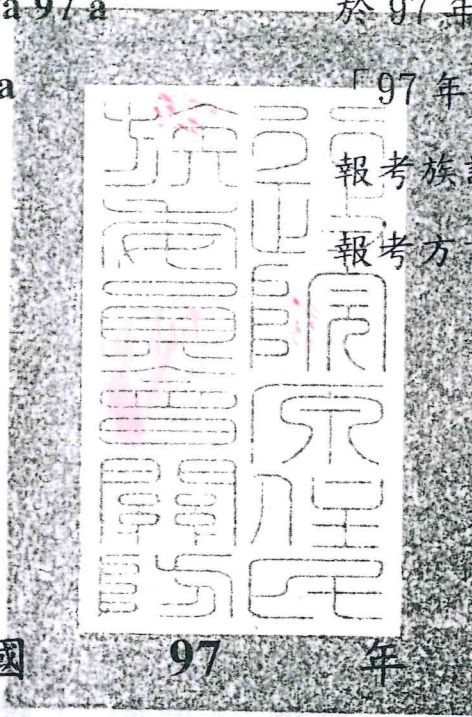 a 97 a
於 97 年
a
「97 年
報考族
報考方
行政院原住民
族委員會關防
國 97 年